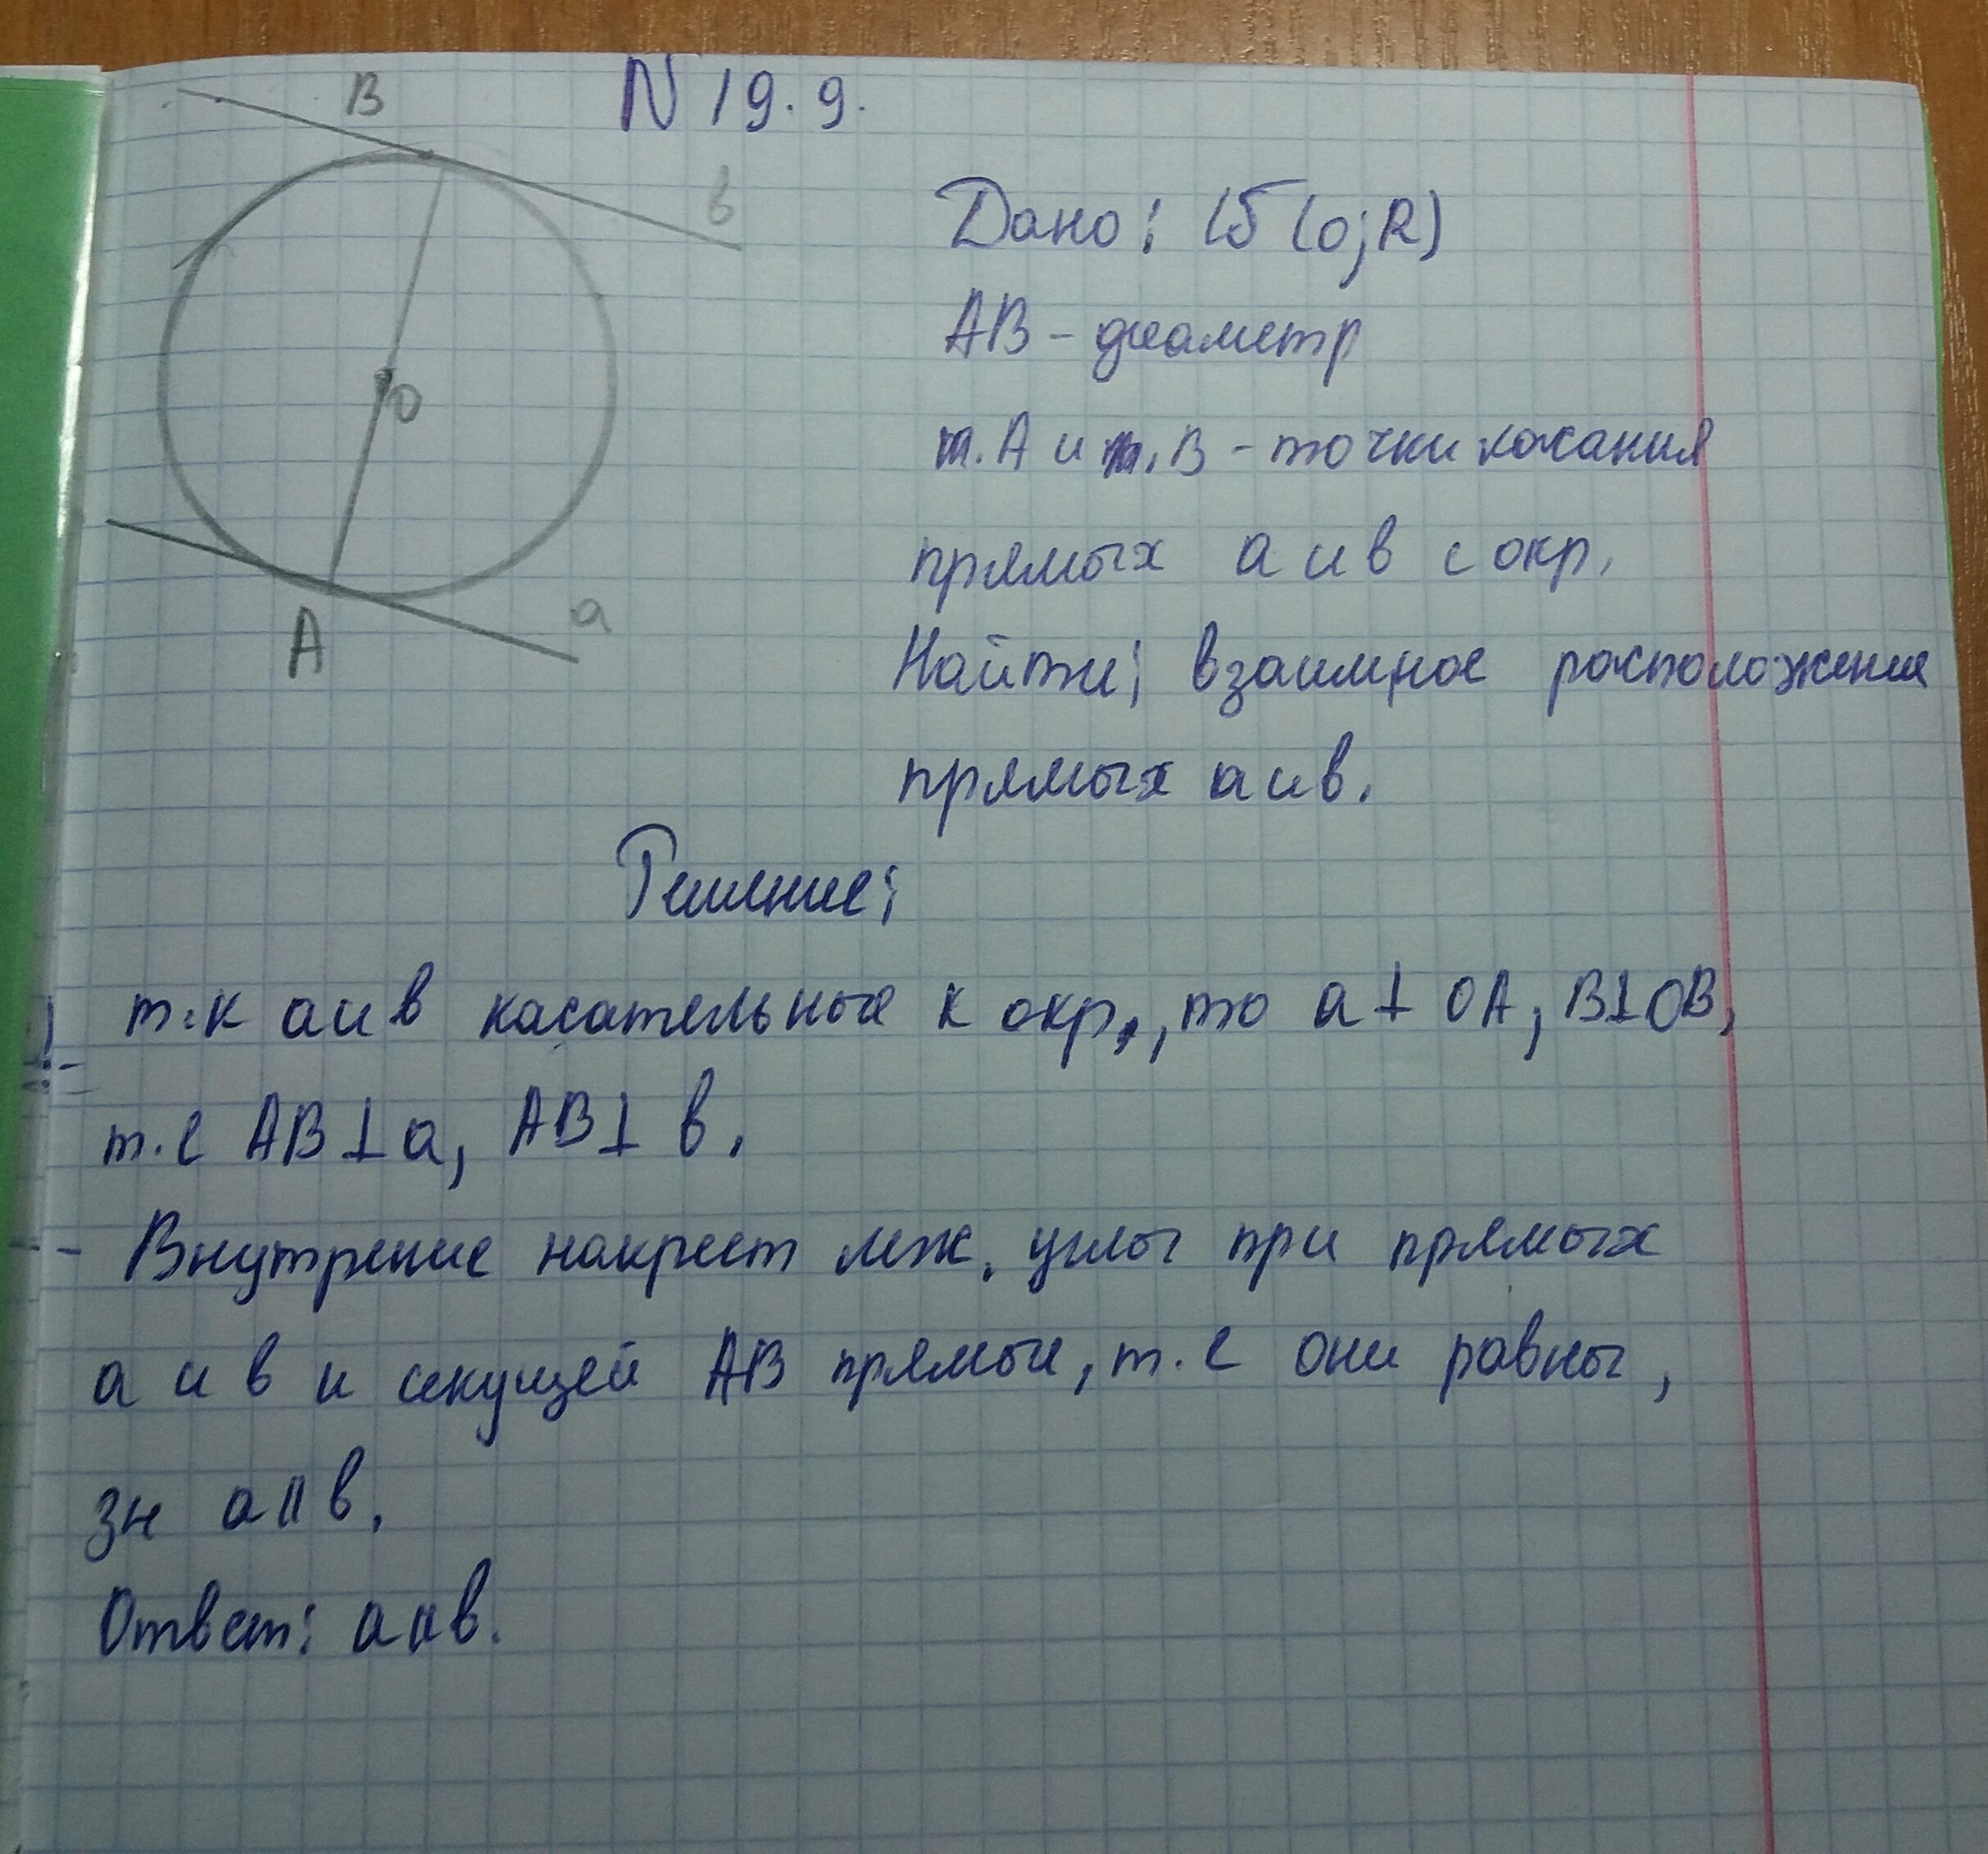 N 19.9.
B
в
O
A
a
Дано: (O;R)
AB - диаметр
т. A и т. B - точки касания
прямых a и в с окр.
Найти: взаимное расположение
прямых a и в.
Решение:
т.к a и в касательные к окр., то a⊥OA, B⊥OB,
т.е AB⊥a, AB⊥в.
- Внутрение накрест леж. углы при прямых
a и в и секущей AB прямые, т.е они равны,
зн a || в.
Ответ: a || в.